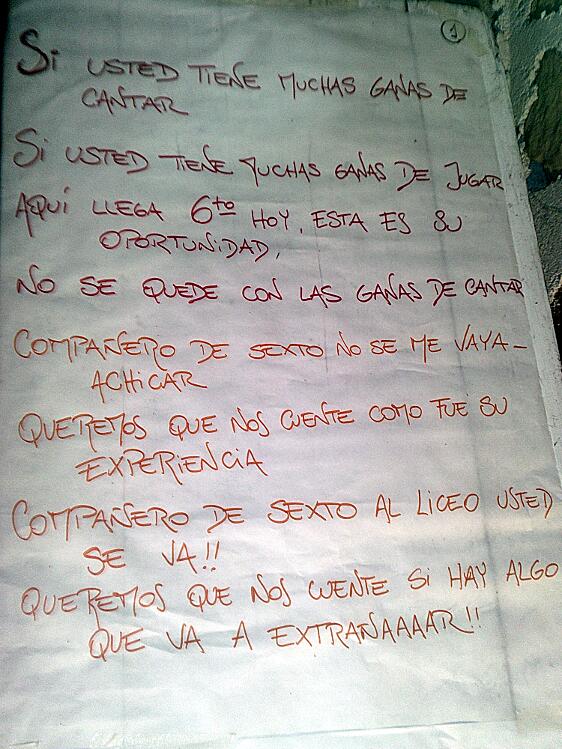 1
Si USTED TIENE MUCHAS GANAS DE
CANTAR
Si USTED TIENE MUCHAS GANAS DE JUGAR
AQUÍ LLEGA 6to HOY, ESTA ES SU
OPORTUNiDAD,
NO SE QUEDE CON LAS GANAS DE CANTAR
COMPAÑERO DE SEXTO NO SE ME VAYA-
ACHiCAR
QUEREMOS QUE NOS CUENTE COMO FUE SU
EXPERiENCiA
COMPAÑERO DE SEXTO AL LiCEO USTED
SE VA!!
QUEREMOS QUE NOS CUENTE Si HAY ALGO
QUE VA A EXTRAÑAAAAR!!